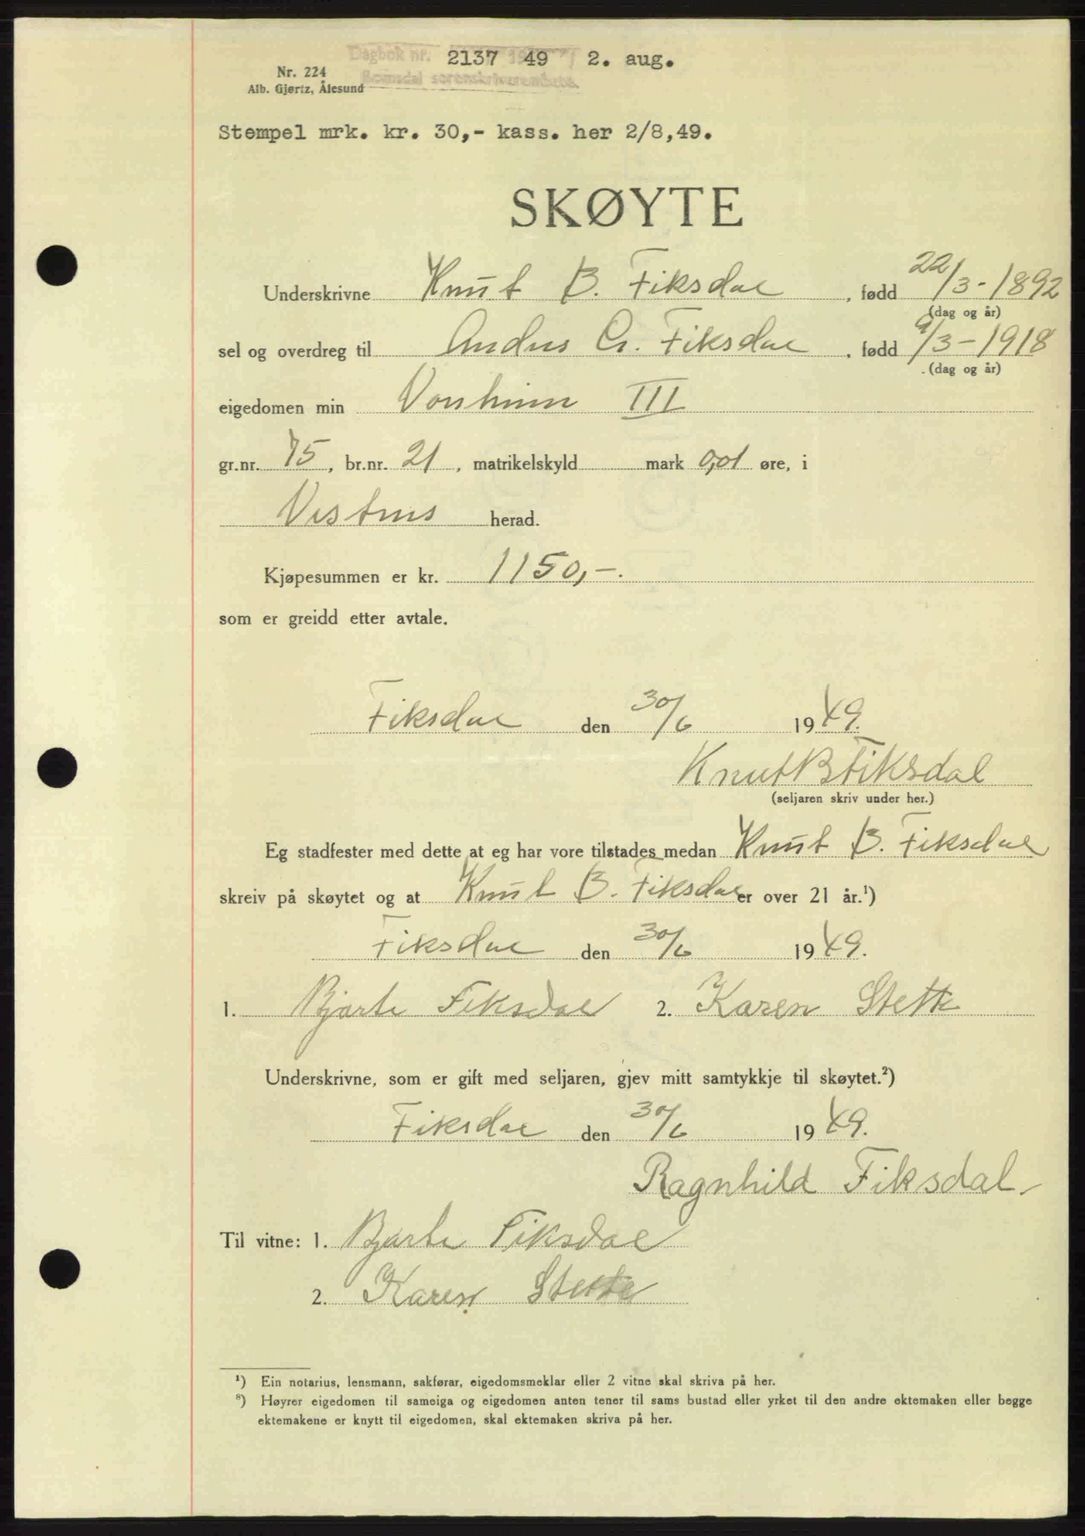 Dagbok nr. 2137 1949 2. aug.
Nr. 224
Romsdal sorenskriverembete.
Alb. Gjørtz, Ålesund
Stempel mrk. kr. 30,- kass. her 2/8,49.
SKØYTE
Underskrivne Knut B. Fiksdal , fødd 22/3-1892
(dag og år)
sel og overdreg til Anders Chr. Fiksdal , fødd 9/3-1918
(dag og år)
eigedomen min Vonheim III
gr.nr. 75 , br.nr. 21 , matrikelskyld mark 0,01 øre, i
Vestnes herad.
Kjøpesummen er kr. 1150,-.
som er greidd etter avtale.
Fiksdal den 30/6 1949.
Knut B Fiksdal
(seljaren skriv under her.)
Eg stadfester med dette at eg har vore tilstades medan Knut B. Fiksdal
skreiv på skøytet og at Knut B. Fiksdal er over 21 år.¹)
Fiksdal den 30/6 1949.
1. Bjarte Fiksdal 2. Karen Stette
Underskrivne, som er gift med seljaren, gjev mitt samtykkje til skøytet.²)
Fiksdal den 30/6 1949.
Ragnhild Fiksdal.
Til vitne: 1. Bjarte Fiksdal
2. Karen Stette
¹) Ein notarius, lensmann, sakførar, eigedomsmeklar eller 2 vitne skal skriva på her.
²) Høyrer eigedomen til sameiga og eigedomen anten tener til sams bustad eller yrket til den andre ektemaken eller begge
ektemakene er knytt til eigedomen, skal ektemaken skriva på her.